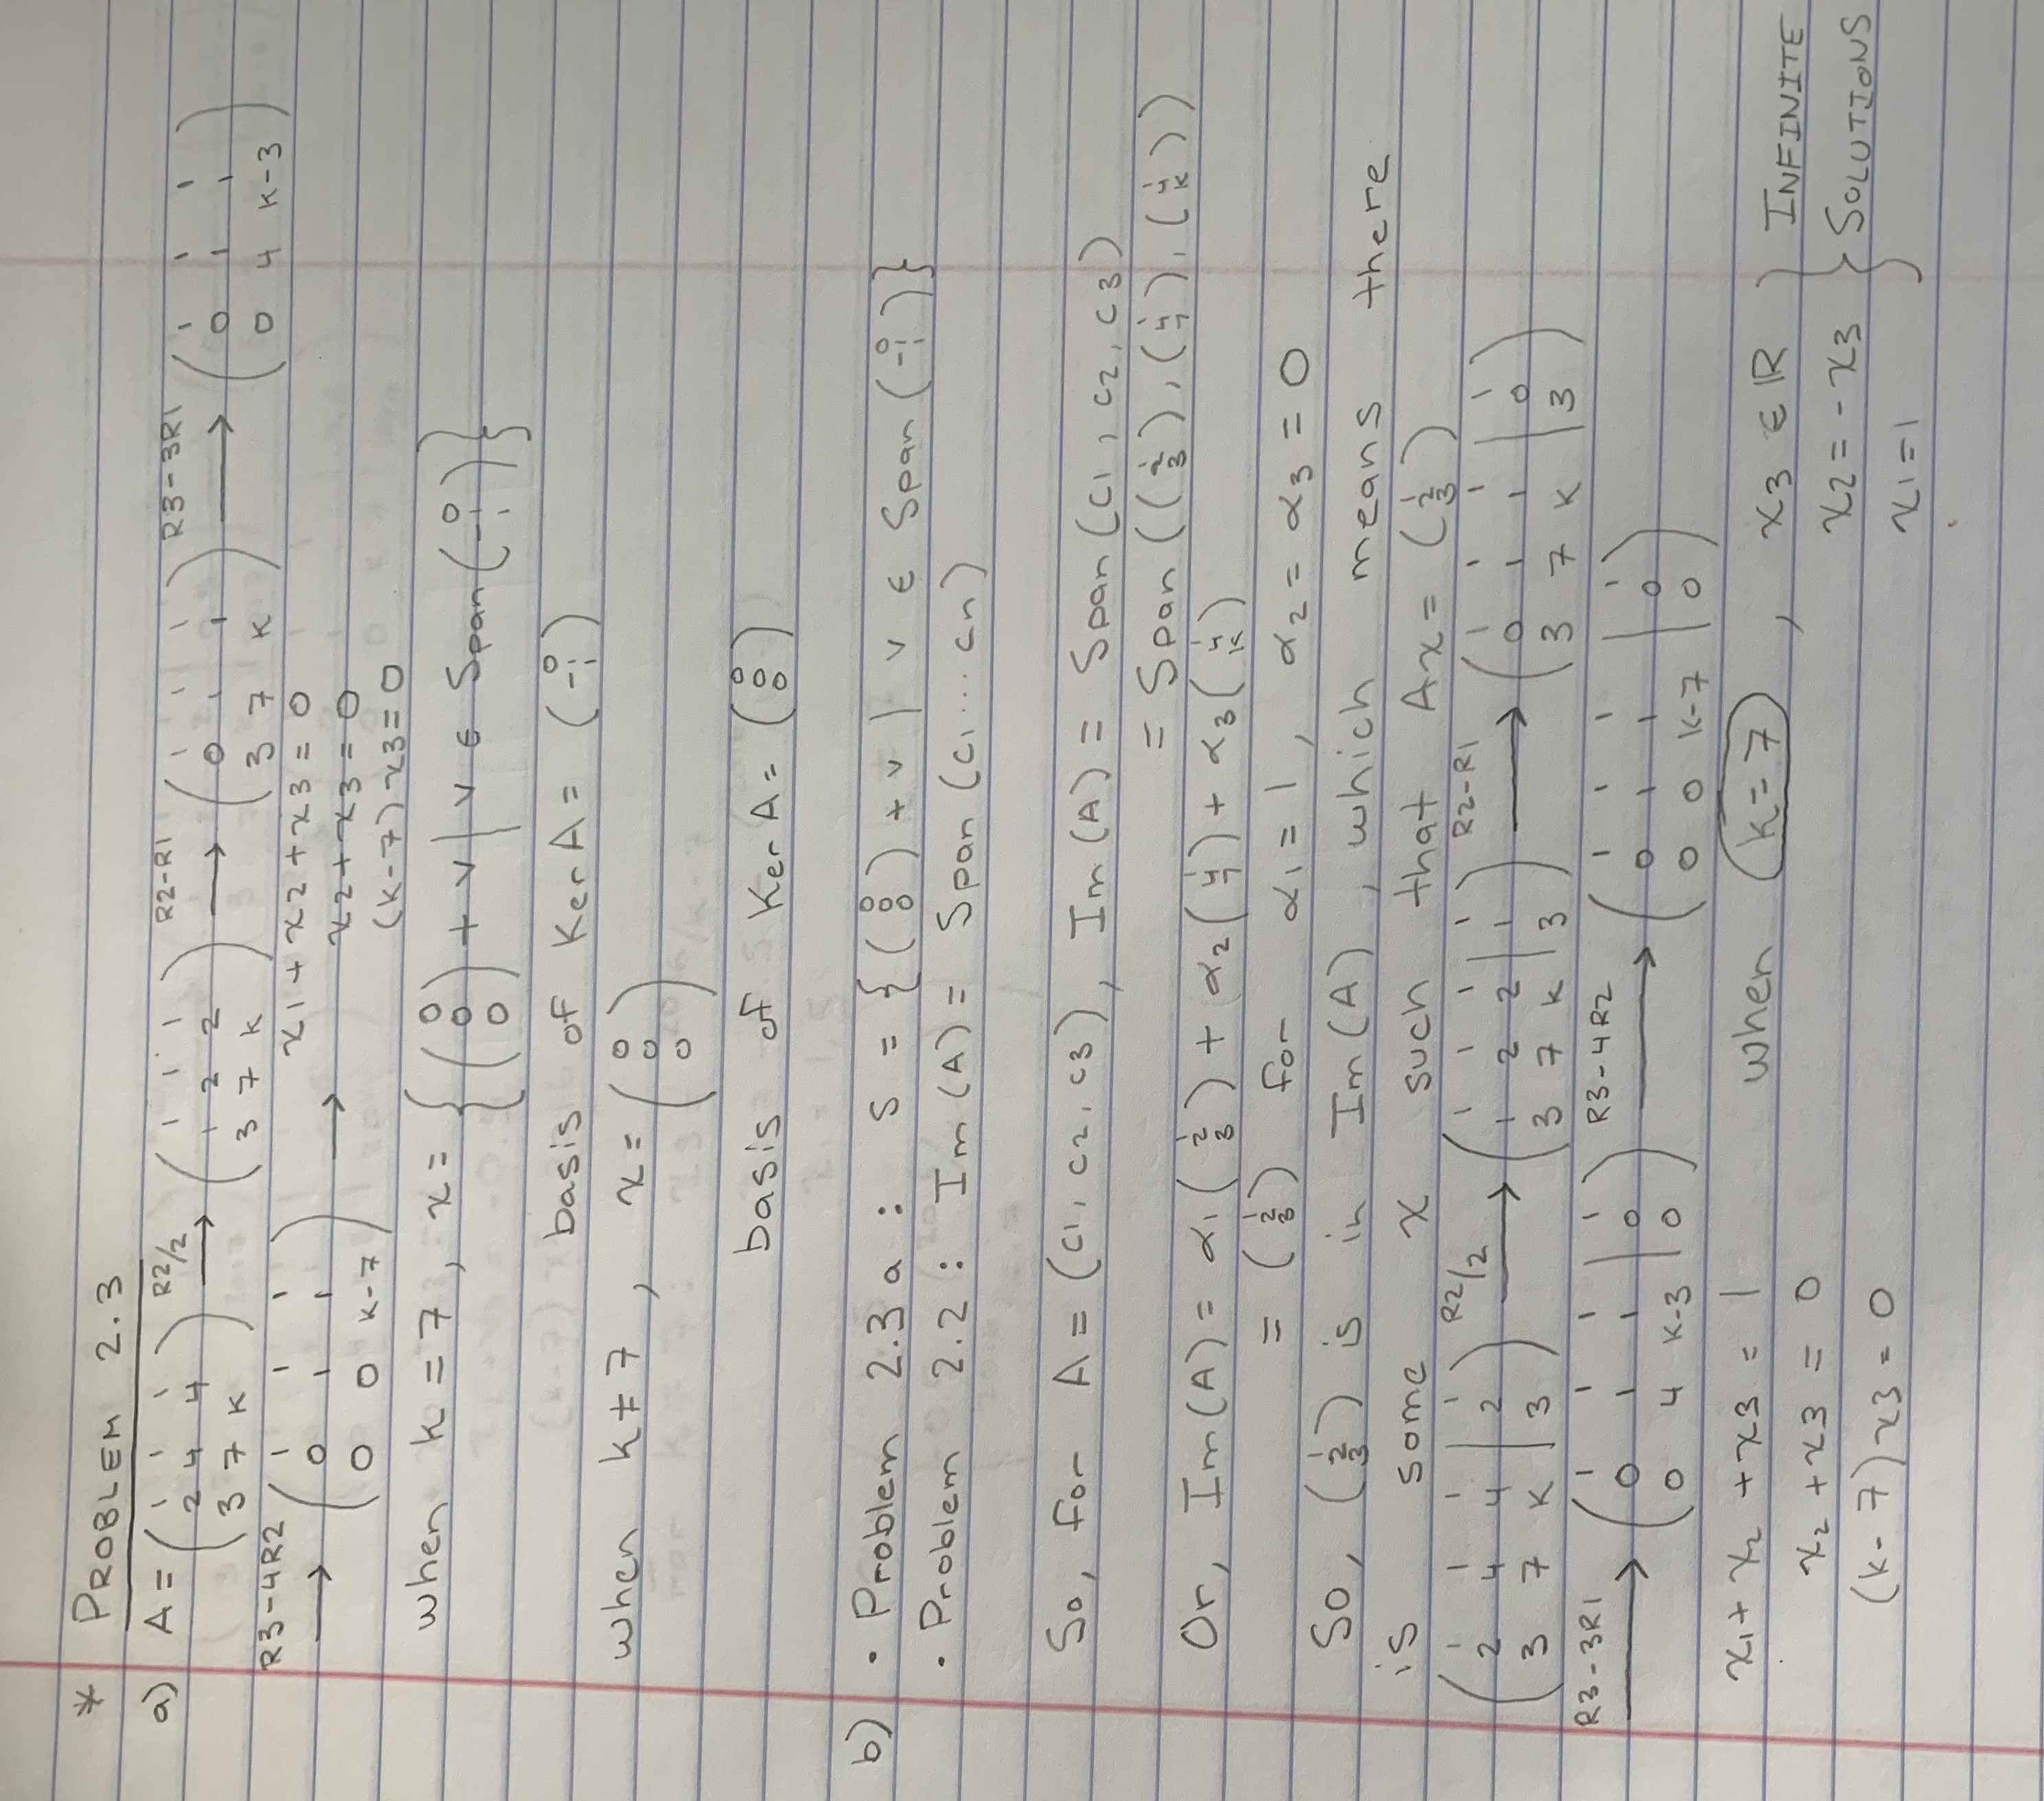 * PROBLEM 2.3
a) A = (1 1 1; 2 4 4; 3 7 k) R2/2 → (1 1 1; 1 2 2; 3 7 k) R2-R1 → (1 1 1; 0 1 1; 3 7 k) R3-3R1 → (1 1 1; 0 1 1; 0 4 k-3)
R3-4R2 → (1 1 1; 0 1 1; 0 0 k-7) → x1 + x2 + x3 = 0
x2 + x3 = 0
(k-7) x3 = 0
when k = 7, x = { (0; 0; 0) + v | v ∈ Span (0; -1; 1) }
basis of Ker A = (0; -1; 1)
when k ≠ 7, x = (0; 0; 0)
basis of Ker A = (0; 0; 0)
b) • Problem 2.3 a : S = { (0; 0; 0) + v | v ∈ Span (0; -1; 1) }
• Problem 2.2 : Im (A) = Span (c1 ... cn)
So, for A = (c1, c2, c3), Im (A) = Span (c1, c2, c3)
= Span ((1; 2; 3), (1; 4; 7), (1; 4; k))
Or, Im (A) = α1 (1; 2; 3) + α2 (1; 4; 7) + α3 (1; 4; k)
= (1; 2; 3) for α1 = 1, α2 = α3 = 0
So, (1; 2; 3) is in Im (A), which means there
is some x such that Ax = (1; 2; 3)
(1 1 1 | 1; 2 4 4 | 2; 3 7 k | 3) R2/2 → (1 1 1 | 1; 1 2 2 | 1; 3 7 k | 3) R2-R1 → (1 1 1 | 1; 0 1 1 | 0; 3 7 k | 3)
R3-3R1 → (1 1 1 | 1; 0 1 1 | 0; 0 4 k-3 | 0) R3-4R2 → (1 1 1 | 1; 0 1 1 | 0; 0 0 k-7 | 0)
x1 + x2 + x3 = 1 when k = 7, x3 ∈ ℝ } INFINITE
x2 + x3 = 0 x2 = - x3 SOLUTIONS
(k-7) x3 = 0 x1 = 1